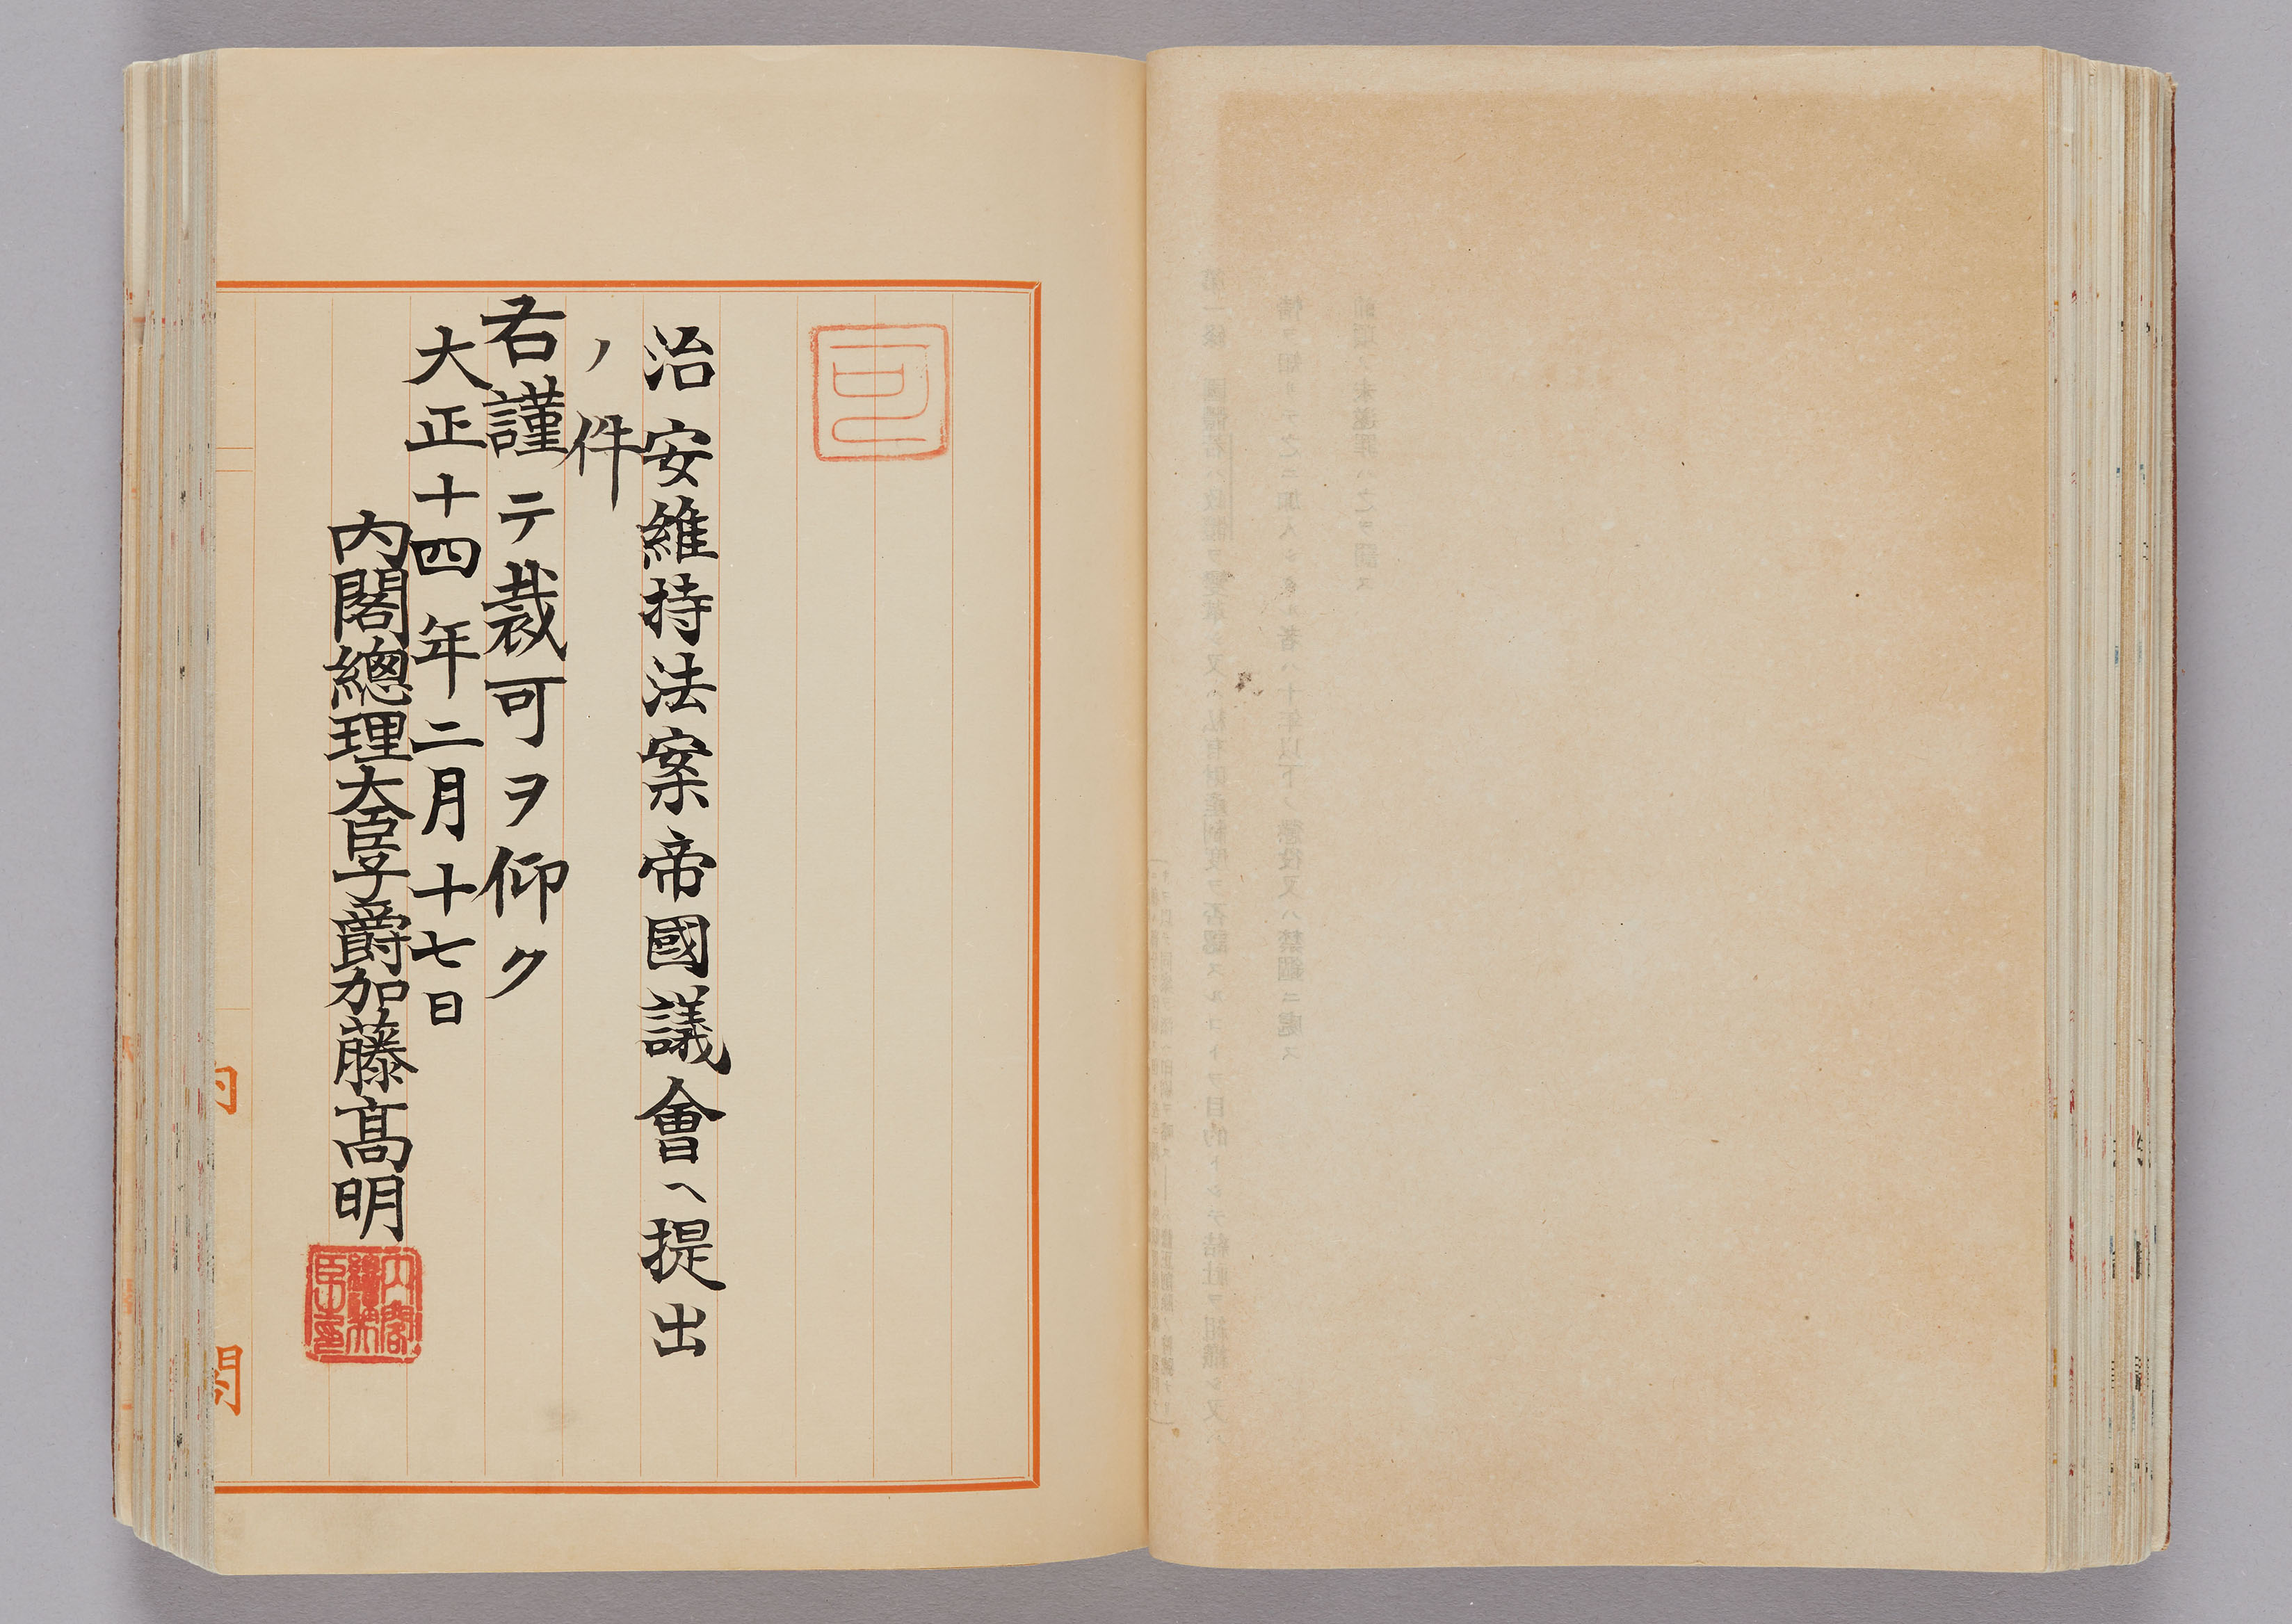 可
治安維持法案帝國議會ヘ提出
ノ件
右謹テ裁可ヲ仰ク
大正十四年二月十七日
内閣總理大臣子爵加藤高明
内閣總理大臣印
内閣